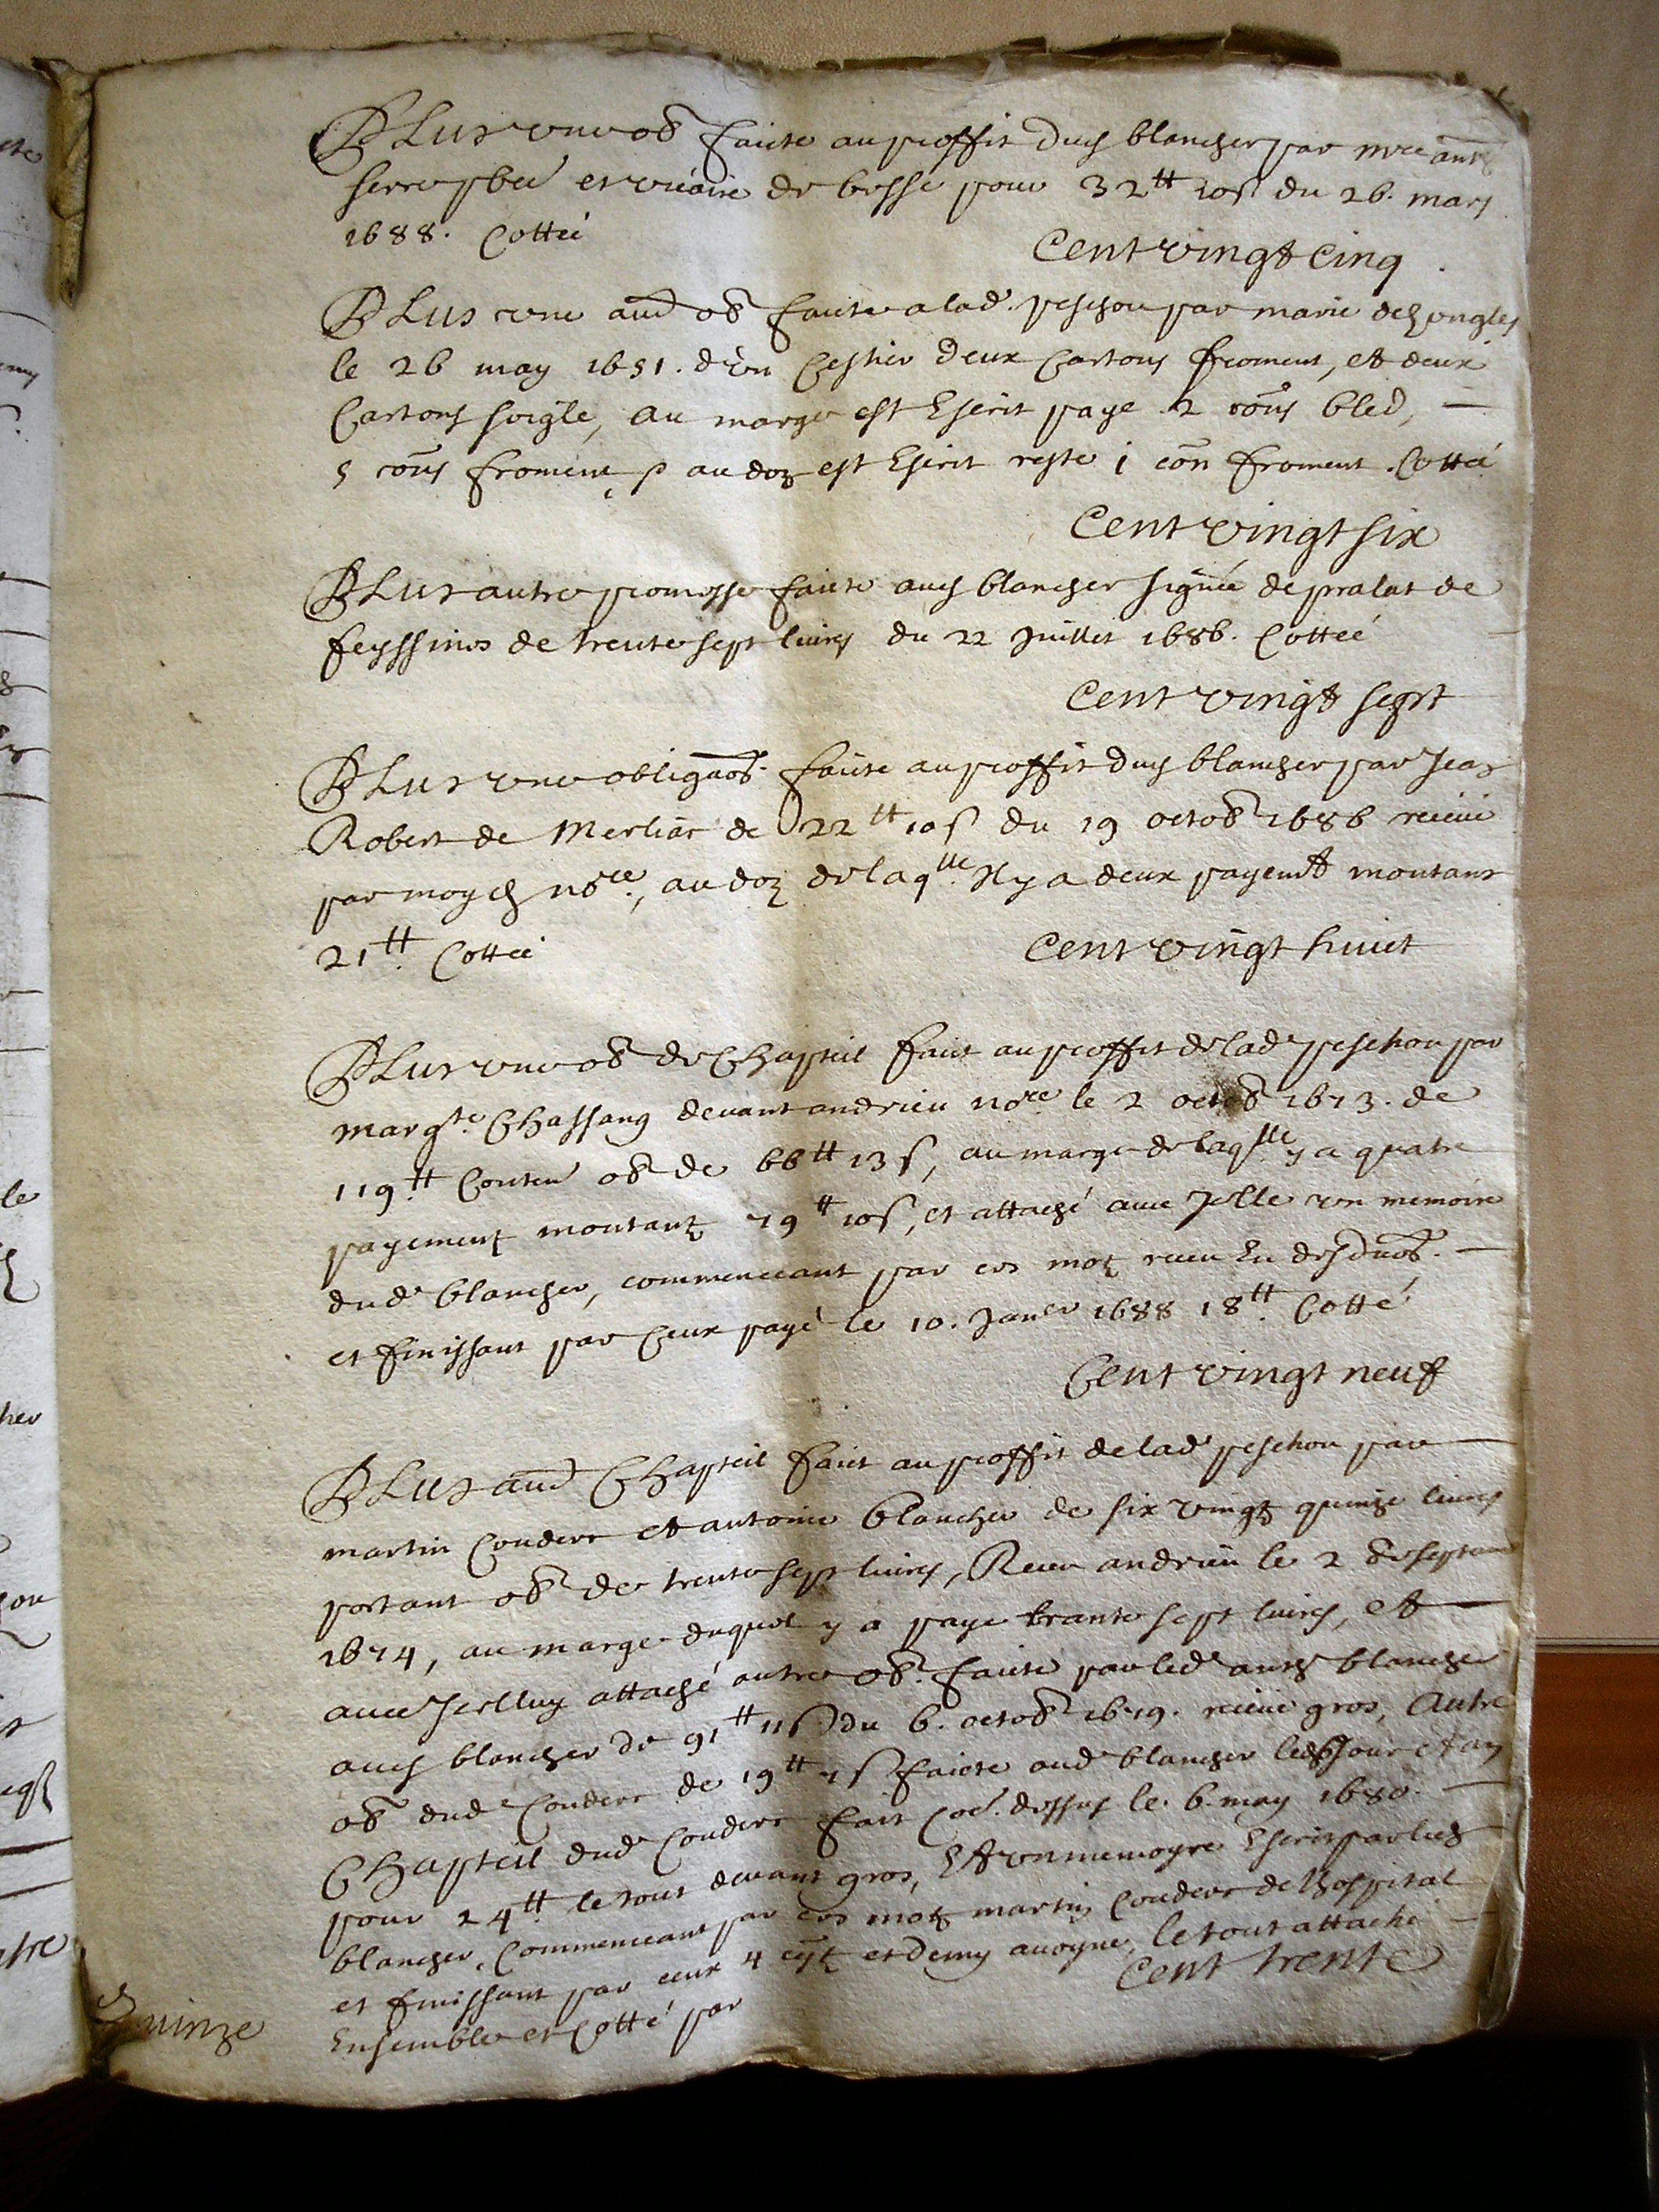 PLus une ob faicte au proffit dud blancher par mre anth
serre pbre et vicaire de besse pour 32tt 10s du 26. mars
1688. Cottée
Cent vingt Cinq
PLus une aud ob faicte a lad. peschou par marie
le 26 may 1651. d'un Cestier deux Cartons froment, et deux
Cartons soigle, au marge est Escrit paye 2 cons bled,
5 cons froment, au doz est Escrit reste 1 con froment. Cottée
Cent vingt six
PLus autre promesse faicte aud blancher signée de pralat de
feyssines de trente sept livres du 22 Juillet 1686. Cottée
Cent vingt sept
PLus une obligaon. faicte au proffit dud blancher par Jean
Robert de Merliac de 22tt 10s du 19 octob 1686 receue
par moyd nore, au doz de laqlle. Il y a deux payemt montant
21tt. Cottée
Cent vingt huict
PLus une ob de Chapteil faict au proffit de lad peschou par
margte. Chassang devant andrieu nore. le 2 octob 1673. de
119tt Conten ob de 66tt 13s, au marge de laqlle y a quatre
payementz montantz 79tt 10s, et attaché avec Jcelle un memoire
dud. blancher, commenceant par ces motz receu En desduon.
et finissant par Ceux payé le 10. Janer 1688 18tt. Cotté
Cent vingt neuf
PLus aud Chapteil faict au proffit de lad peschou par
martin Couderc et antoine blancher de six vingtz quinze livres
portant ob de trente sept livres, Receu andrieu le 2 de septem
1674, au marge duquel y a paye trante sept livres, et
avec Jcelluy attaché autre ob. faicte par led anth blancher
aud blancher de 91tt 11s du 6. octob 1679. receue gros, Autre
ob dud Couderc de 19tt 7s faicte aud blancher led Jour et an
Chapteil dud Couderc fait dessus le. 6. may 1680.
pour 24tt. le tout devant gros, Et un memoyre Escrit par led
blancher, Commenceant par ces motz martin Couderc de lhospital
et finissant par ceux 4 et demy avoyne, le tout attaché
Ensemble et Cotté par
Cent trente
Quinze